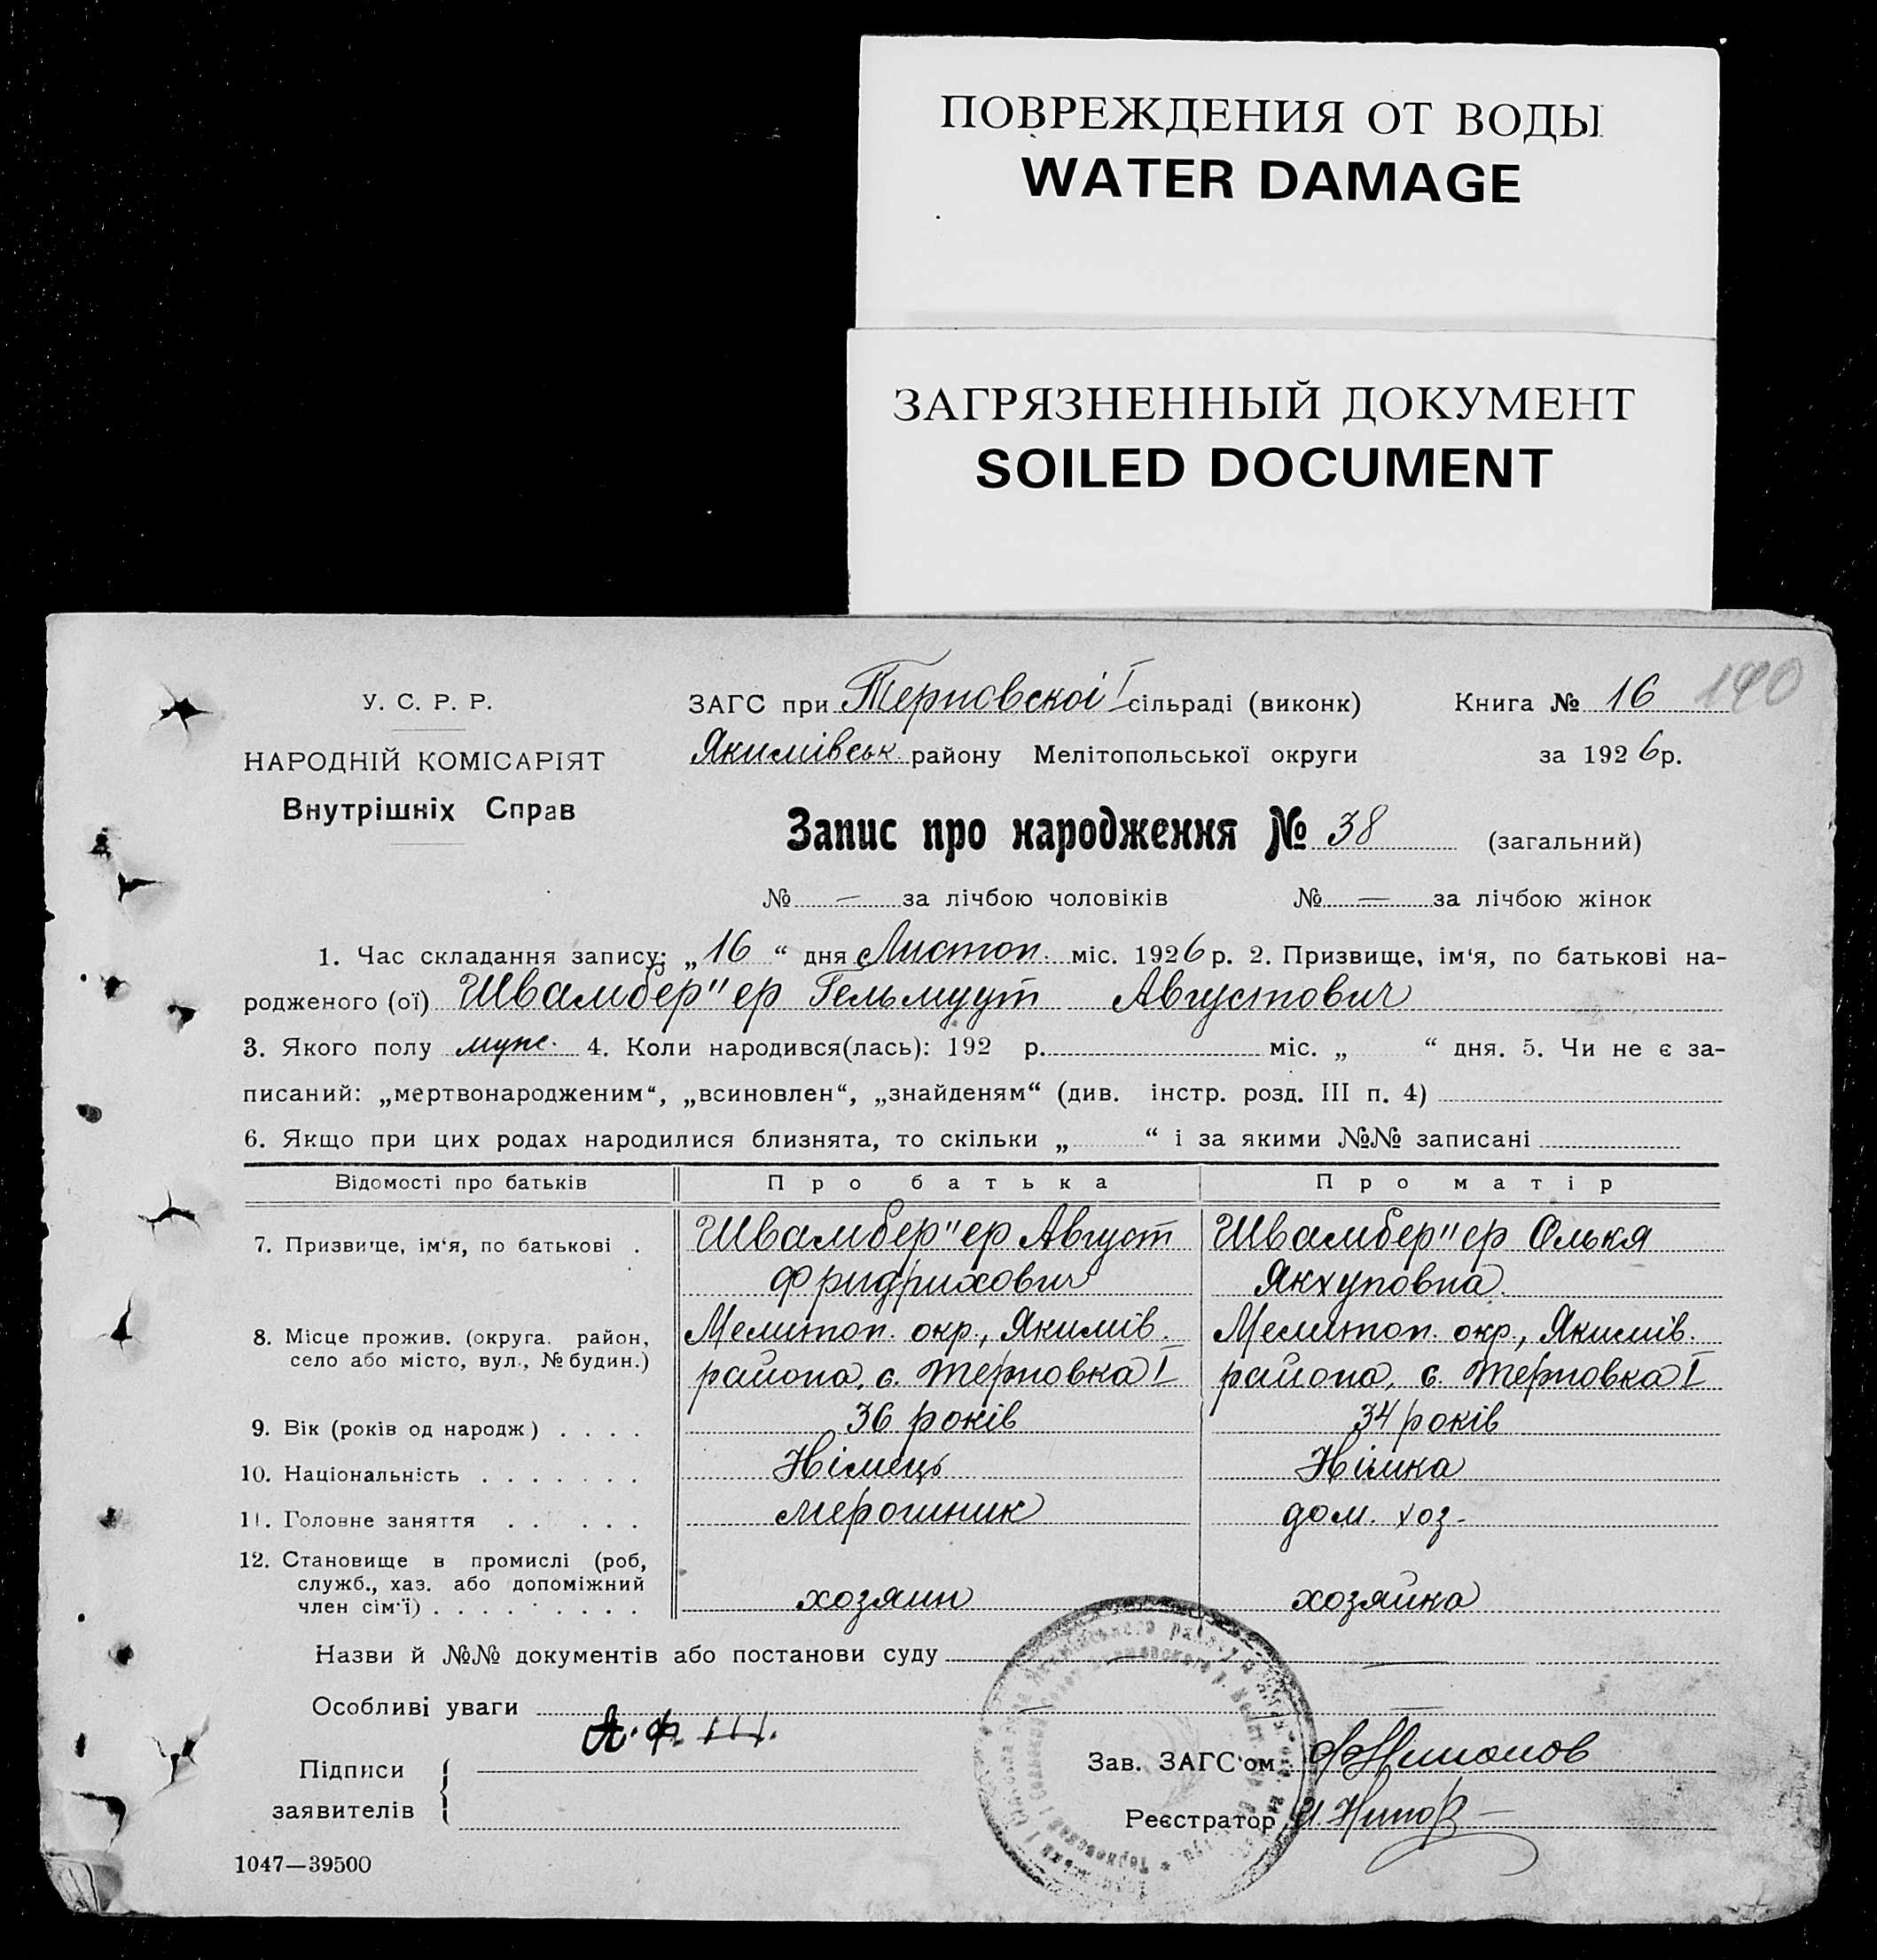 ПОВРЕЖДЕНИЯ ОТ ВОДЫ
WATER DAMAGE
ЗАГРЯЗНЕННЫЙ ДОКУМЕНТ
SOILED DOCUMENT
190
У. С. Р. Р.
НАРОДНІЙ КОМІСАРІЯТ
Внутрішніх Справ
ЗАГС при Терновскої I сільраді (виконк) Книга № 16
Якимівськ. району Мелітопольської округи за 1926 р.
Запис про народження № 38 (загальний)
№ — за лічбою чоловіків № — за лічбою жінок
1. Час складання запису: „16“ дня Листоп. міс. 1926 р. 2. Призвище, ім‘я, по батькові на-
родженого (ої) Швамбер"ер Гельмуут Августович
3. Якого полу муж. 4. Коли народився(лась): 192 р. міс. „ “ дня. 5. Чи не є за-
писаний: „мертвонародженим“, „всиновлен“, „знайденям“ (див. інстр. розд. III п. 4)
6. Якщо при цих родах народилися близнята, то скільки „ “ і за якими №№ записані
Відомості про батьків Про батька Про матір
7. Призвище, ім‘я, по батькові . Швамбер"ер Август Швамбер"ер Олькя
Фридрихович Якхуповна
8. Місце прожив. (округа, район, Мелитоп. окр., Якимів. Мелитоп. окр., Якимів.
село або місто, вул., № будин.) района, с. Терновка I района, с. Терновка I
9. Вік (років од народж) . . . . 36 років 34 років
10. Національність . . . . . . . Німець Німка
11. Головне заняття . . . . . мерошник дом. хоз-
12. Становище в промислі (роб,
служб., хаз. або допоміжний
член сім‘ї) . . . . . . . . . хозяин хозяйка
Назви й №№ документів або постанови суду —
Особливі уваги — —
А. Ф. Ш.
Підписи
заявителів
Зав. ЗАГС‘ом
Реєстратор
1047—39500